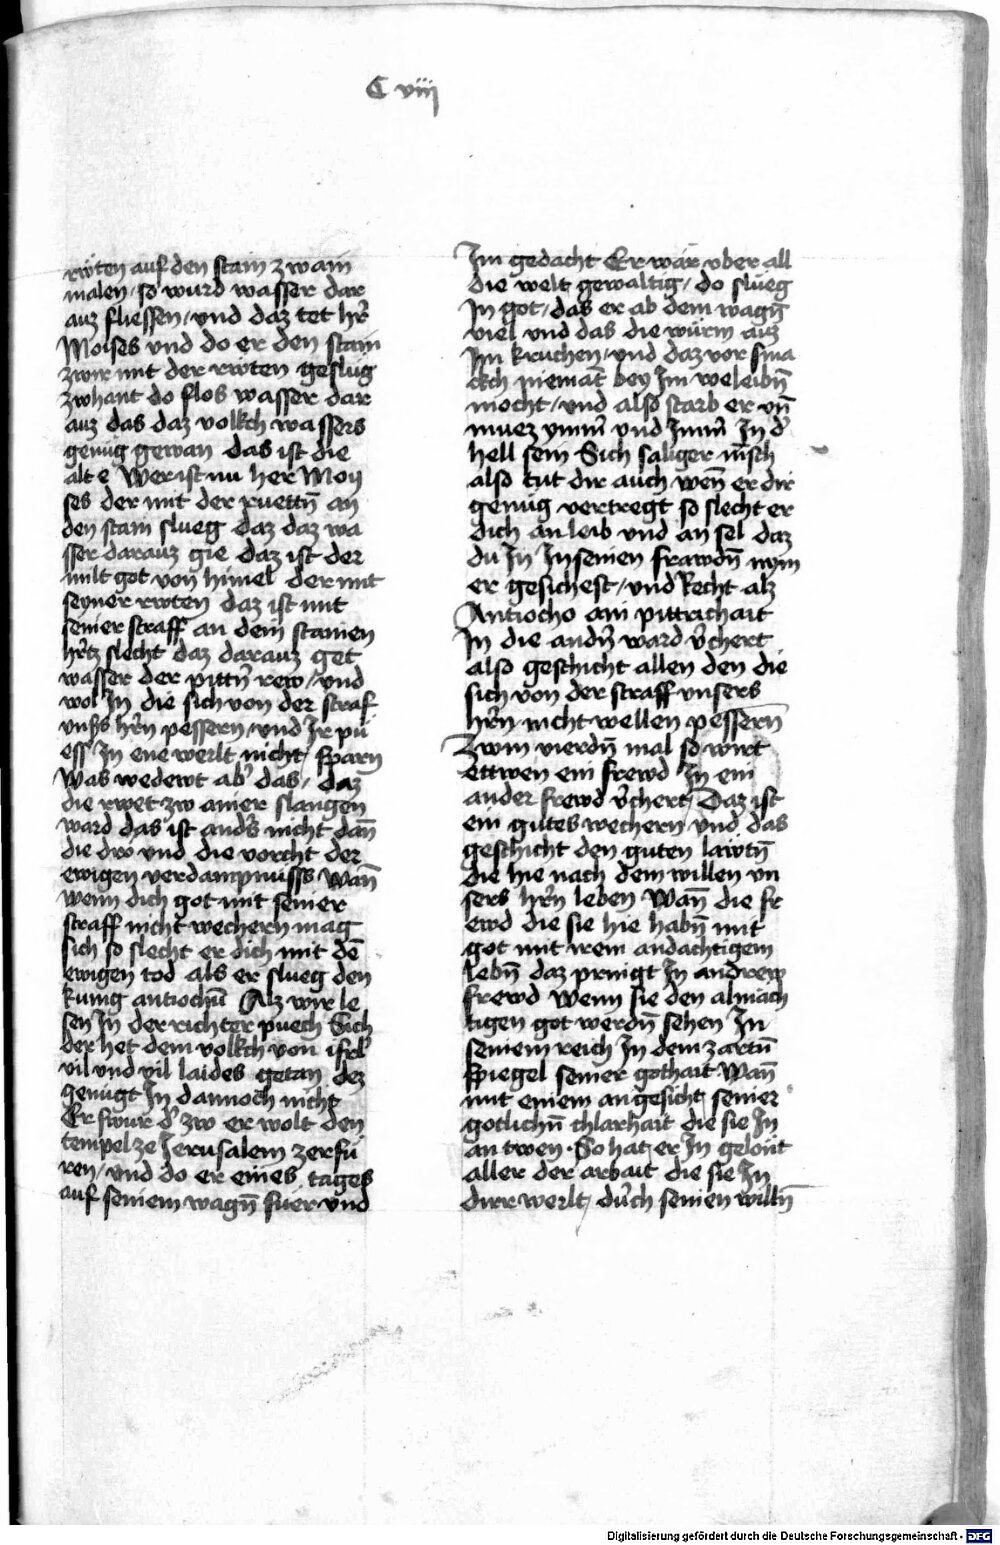 C viij
rwten auf den stain zwain
malen / so wurd wasser dar
auz fliessen / vnd daz tet hr̄
Moises vnd do er den stain
zwir mit der rwten geslug
zwhant do flos wasser dar
auz das daz volkch wassers
genug gewan das ist die
alt e Wer ist nu her Moy
ses der mit der ruettn̄ an
den stain slueg daz daz wa
sser darauz gie daz ist der
milt got von himel der mit
seyner rwten daz ist mit
seiner straff an dem stainen
hr̄tz slecht daz darauz get
wasser der pittn̄ rew / vnd
wol In die sich von der straf
vnſs hr̄n pessern / vnd Ir pu
ess In ene werlt nicht sparn
Was wedewt ab' das / daz
die rwet zw ainer slangen
ward das ist and's nicht dan̄
die dro vnd die vorcht der
ewigen verdampnuss Wan̄
wenn dich got mit seiner
straff nicht wechern mag
sich so slecht er dich mit dē
ewigen tod als er slueg den
kunig antiochū Alz wir le
sen In der richter puech Sich
der het dem volkch von isrl'
vil vnd vil laides getan dez
genugt In dannoch nicht
Er swur d' zw er wolt den
tempel ze Jerusalem zerfu
ren / vnd do er eines tages
auf seinem wagn̄ fuer vnd
Im gedacht Er wär vber all
die welt gewaltig / do slueg
In got / das er ab dem wagn̄
viel vnd das die würm auz
Im kruchen / vnd daz vor sma
ckch niemāt bey Im weleibn̄
mocht / vnd also starb er vn̄
muez ymm̄ vnd Imm̄ In d'
hell sein Sich saliger m̄sch
also tut dir auch / wen̄ er dir
genug vertregt so slecht er
dich an leib vnd an sel daz
du In In seinen frawdn̄ nym
er gesichest / vnd Recht alz
Antiocho am pittrichait
In die and'n̄ ward v'chert
also geschicht allen den die
sich von der straff vnsers
hr̄n nicht wellen pessern
Zwm vierdn̄ mal so wirt
ettwen ein frewd In ein
ander frewd v'chert / Daz ist
ein gutes wechern vnd das
geschicht den guten lawtn̄
die hie nach dem willen vn
sers hr̄n leben Wan̄ die fr
ewd die sie hie habn̄ mit
got mit irem andachtigem
lebn̄ daz prnigt In andrew
frewd Wenn sie den almäch
tigen got werdn̄ sehen In
seinem reich In dem zartn̄
spiegel seiner gothait Wan̄
mit einem angesicht seiner
gotlichn̄ chlarhait die sie In
an twen · So hat er In gelont
aller der arbait die sie In
dirr werlt / durch seinen willn̄
Digitalisierung gefördert durch die Deutsche Forschungsgemeinschaft - DFG